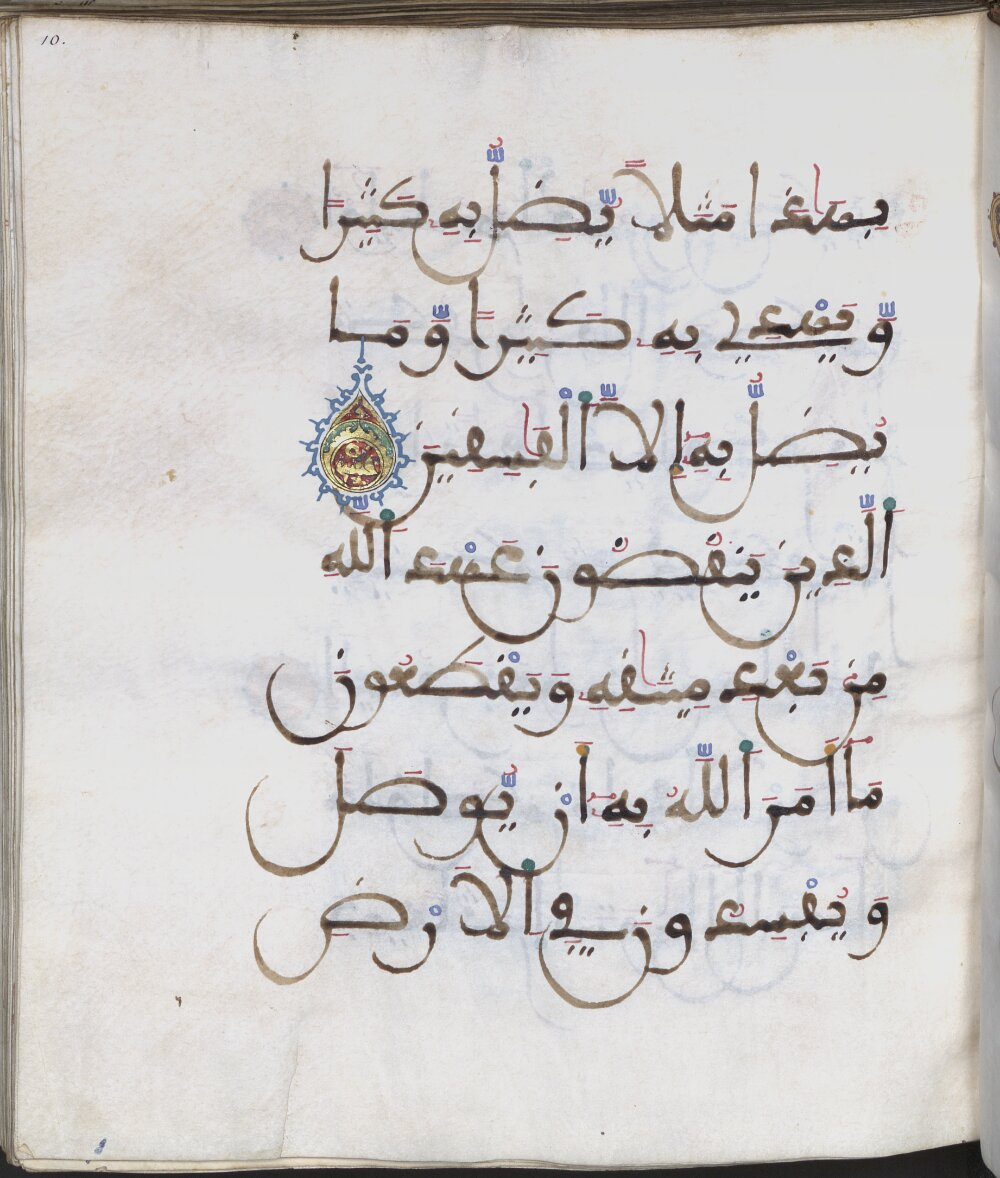 10.
بِهَٰذَا مَثَلاً يُّضِلُّ بِهِ كَثِيراً
وَّيَهْدِي بِهِ كَثِيراً وَّمَا
يُضِلُّ بِهِ إِلاَّ اَ۬لْفَٰسِقِينَ
اَ۬لذِينَ يَنقُضُونَ عَهْدَ اَ۬للَّهِ
مِنۢ بَعْدِ مِيثَٰقِهِ وَيَقْطَعُونَ
مَا أَمَرَ اَ۬للَّهُ بِهِ أَنْ يُّوصَلَ
وَيُفْسِدُونَ فِي اِ۬لاَرْضِ